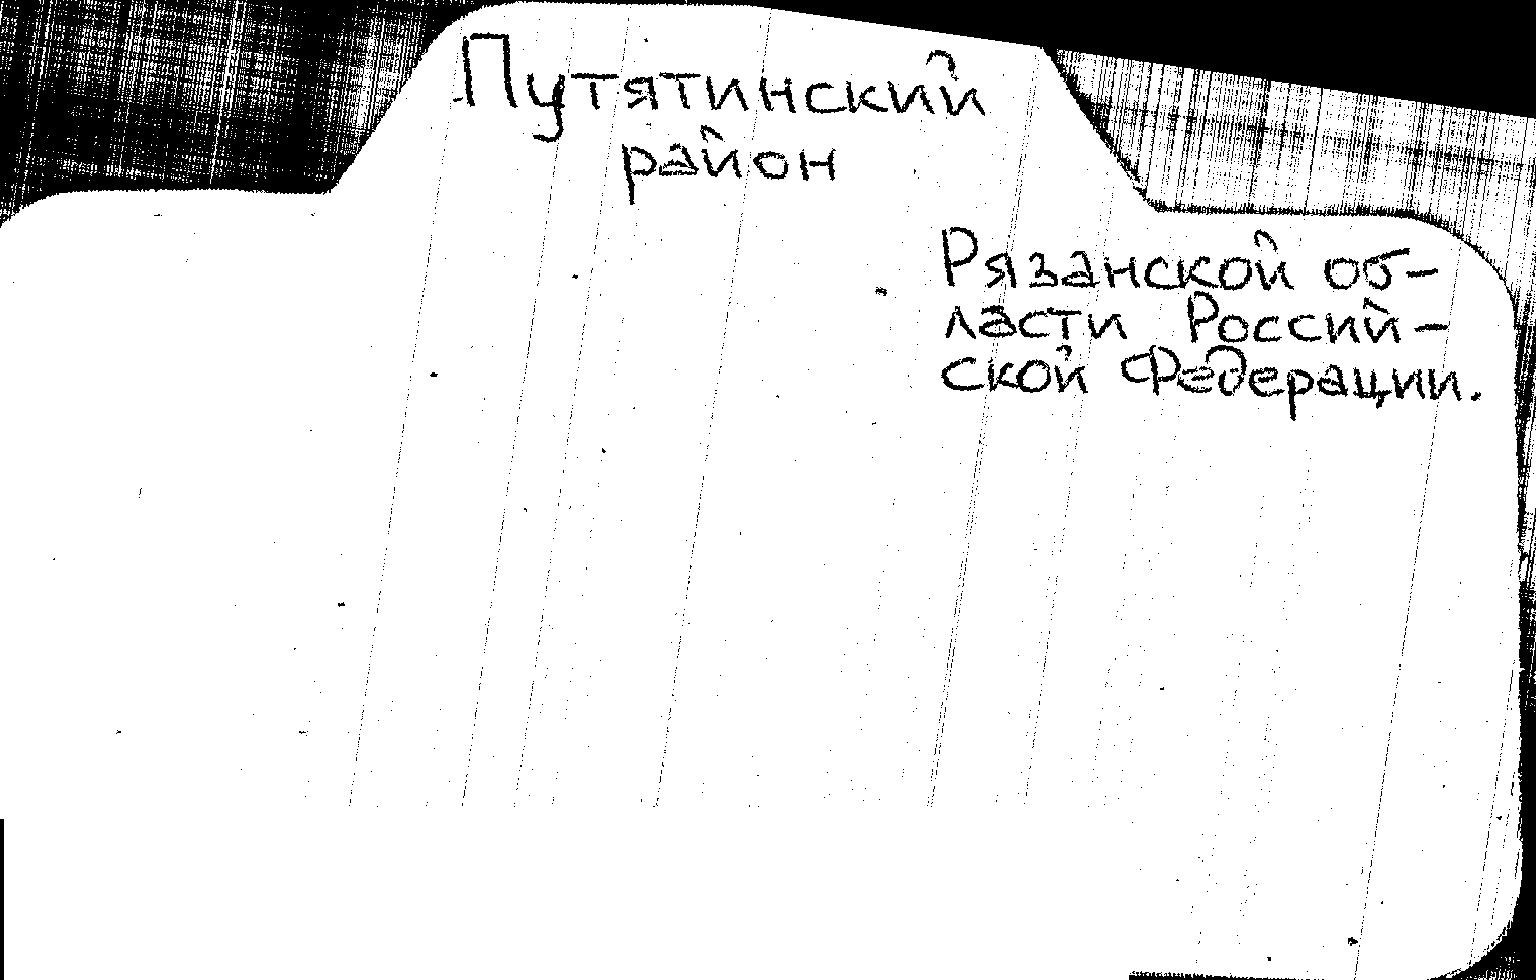 Путятинский
район
Рязанской об-
ласти Россий-
ской Федерации.